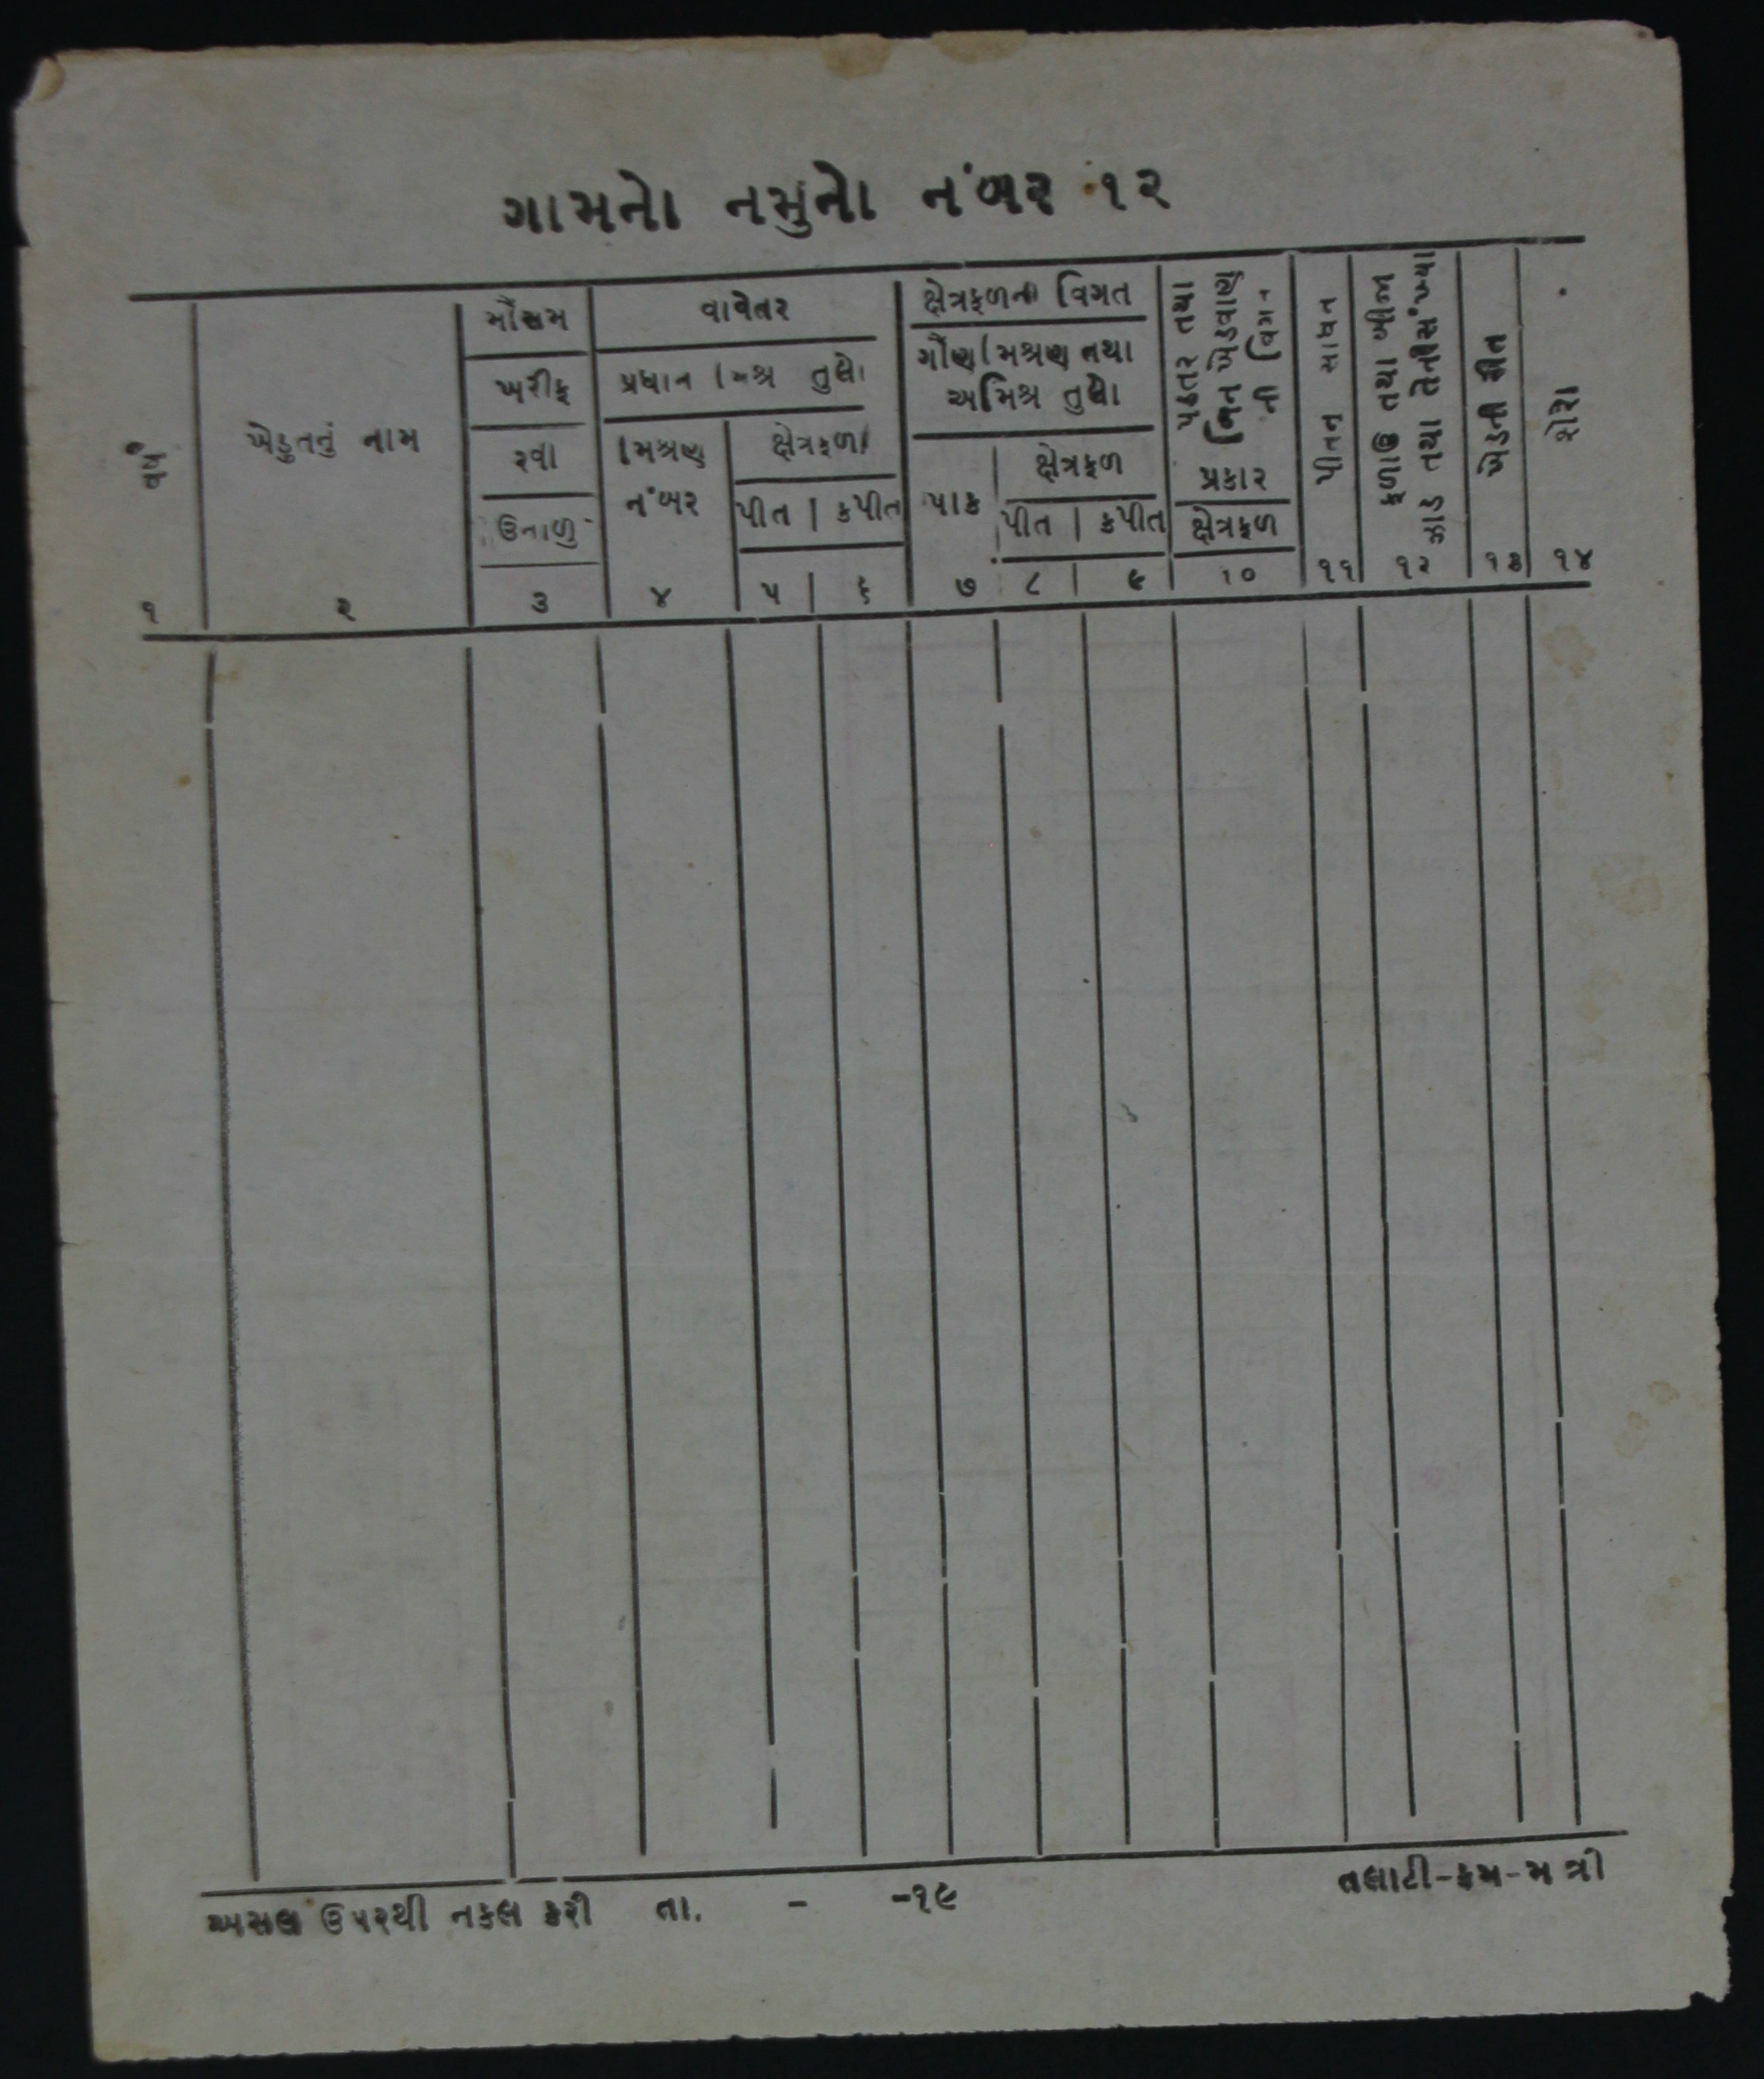 ગામનો નમુનો નંબર ૧૨
વર્ષ
ખેડુતનું નામ
મૌસમ
ખરીફ
રવી
ઉનાળુ
વાવેતર
પ્રધાન મિશ્ર તુલો
મિશ્રણ
નંબર
ક્ષેત્રફળ
પીત | કપીત
ક્ષેત્રફળની વિગત
ગૌણ મિશ્રણ તથા
અમિશ્ર તુલો
પાક
ક્ષેત્રફળ
પીત | કપીત
પડતર તથા
બિન ખેડવાણ
ની વિગત
પ્રકાર
ક્ષેત્રફળ
પીતન સાધન
ફળાઉ તથા બીજા
ઝાડ તથા તેનીસંખ્યા
ખેડની રીત
શેરો
૧ ૨ ૩ ૪ ૫ | ૬ ૭ ૮ | ૯ ૧૦ ૧૧ ૧૨ ૧૩ ૧૪
અસલ ઉપરથી નકલ કરી તા. - -૧૯
તલાટી-કમ-મંત્રી